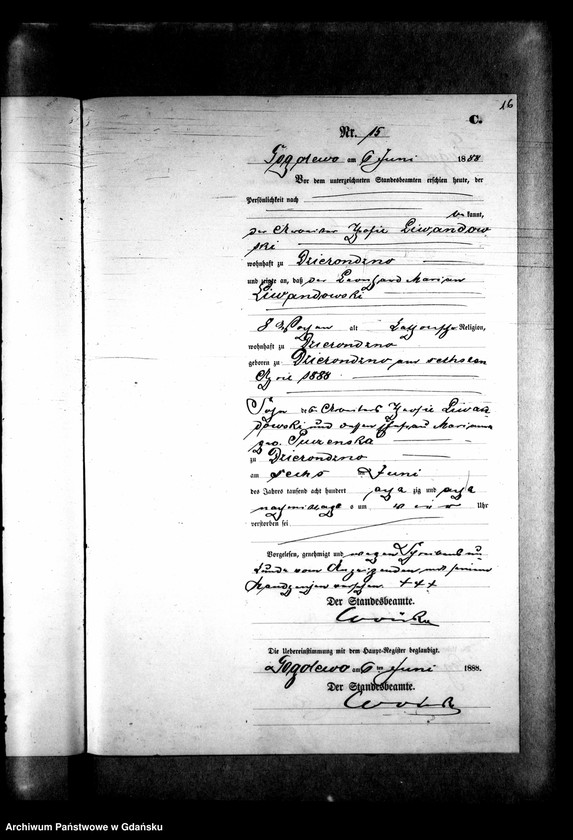 16
C.
Nr. 15
am 6 Juni 1888
Vor dem unterzeichneten Standesbeamten erschien heute, der
Persönlichkeit nach
be kannt,
der Arbeiter Liwandow
ski
wohnhaft zu Dzierondzno
und zeigte an, daß der Leonhard Marian
Liwandowski
8 Wochen alt katholische Religion,
wohnhaft zu Dzierondzno
geboren zu Dzierondzno am sechsten
April 1888
Sohn des Arbeiters Liwan
dowski und dessen Ehefrau Marianna
geb.
zu Dzierondzno
am sechs ten Juni
des Jahres tausend acht hundert acht zig und acht
nachmittags um vier Uhr
verstorben sei
Vorgelesen, genehmigt und wegen Schreibensun
kunde vom Anzeigenden mit seinem
Handzeichen versehen +++
Der Standesbeamte.
Die Uebereinstimmung mit dem Haupt-Register beglaubigt.
am 6 ten Juni 1888.
Der Standesbeamte.
Archiwum Państwowe w Gdańsku